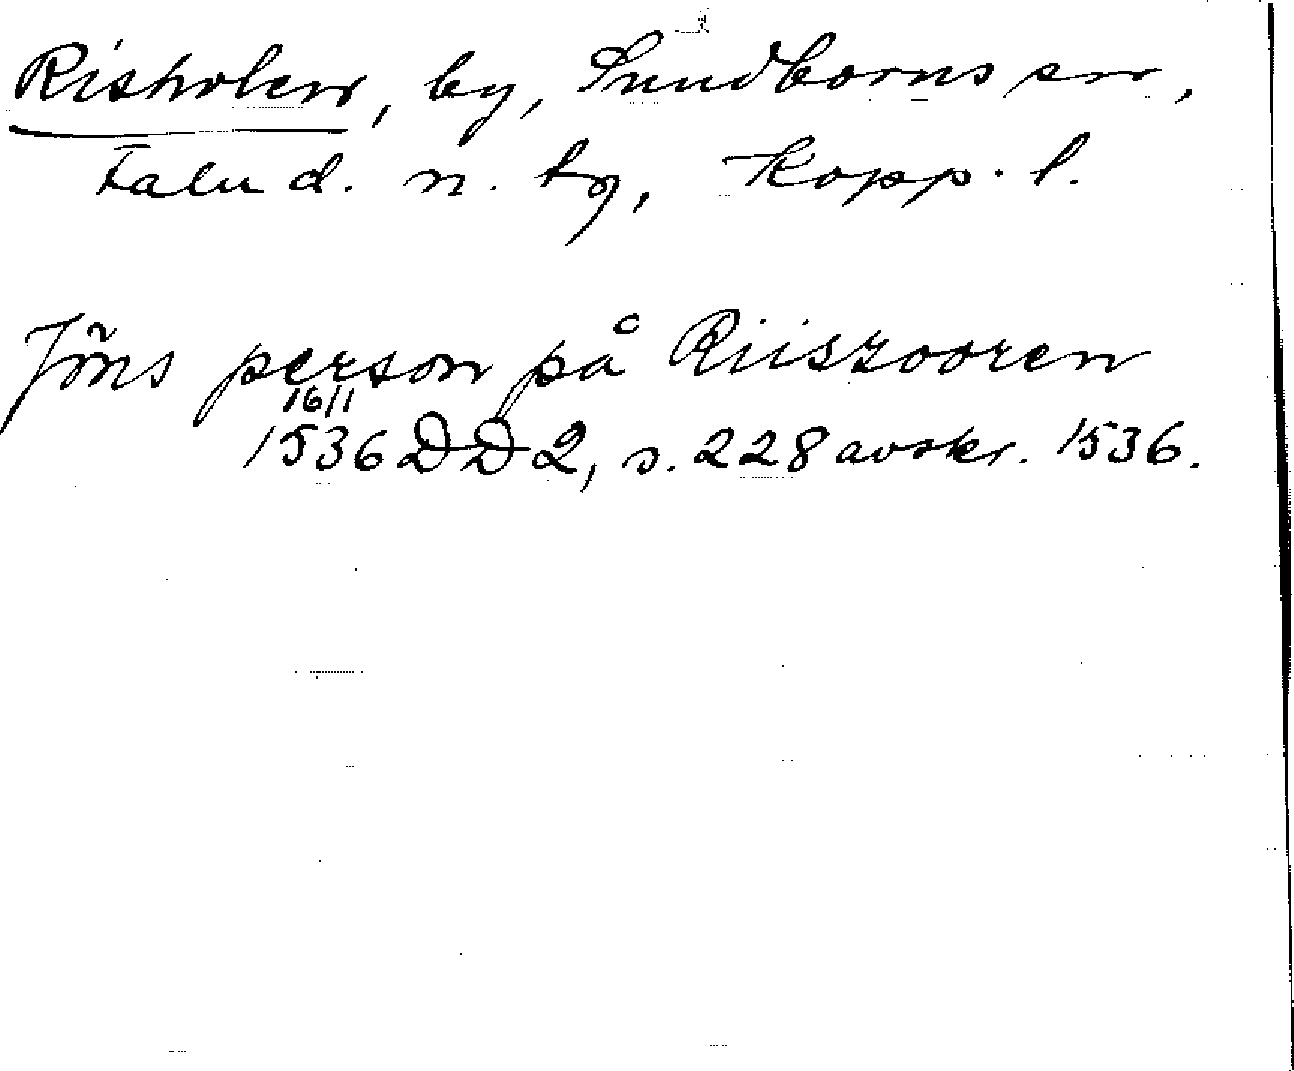 Risholen, by, Sundborns sn,
Falu d. n. tg, Kopp. l.
Jöns person på Riiszooren
16/11
1536 DD2, s. 228 avskr. 1536.